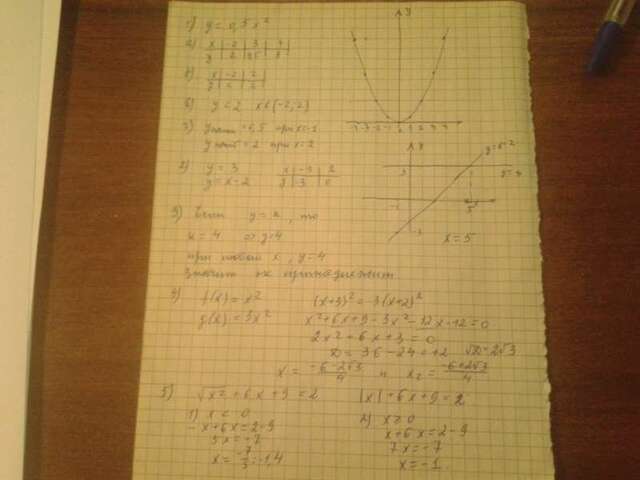 1) y = 0,5x²
а) x | -2 | 3 | 4
y | 2 | 4,5 | 8
x | -2 | 2
y | 2 | 2
y = 2 x ∈ (-2, 2)
3) y наим = 0,5 при x = -1
y наиб = 2 при x = 2
2) y = 3
y = x - 2
y = x - 2
x = 5
3) Если y = 4, то
x = 4 y = 4
при любой x, y = 4
Значит не принадлежит
4) f(x) = x² (x+3)² = 3(x+2)²
g(x) = 3x² x² + 6x + 9 - 3x² - 12x - 12 = 0
2x² + 6x + 3 = 0
D = 36 - 24 = 12 √D = 2√3
x = (-6 - 2√3)/4 и x₂ = (-6 + 2√3)/4
5) √x² + 6x + 9 = 2 |x| + 6x + 9 = 2
1) x < 0 2) x ≥ 0
-x + 6x = 2 - 9 x + 6x = 2 - 9
5x = -7 7x = -7
x = -7/5 = -1,4 x = -1